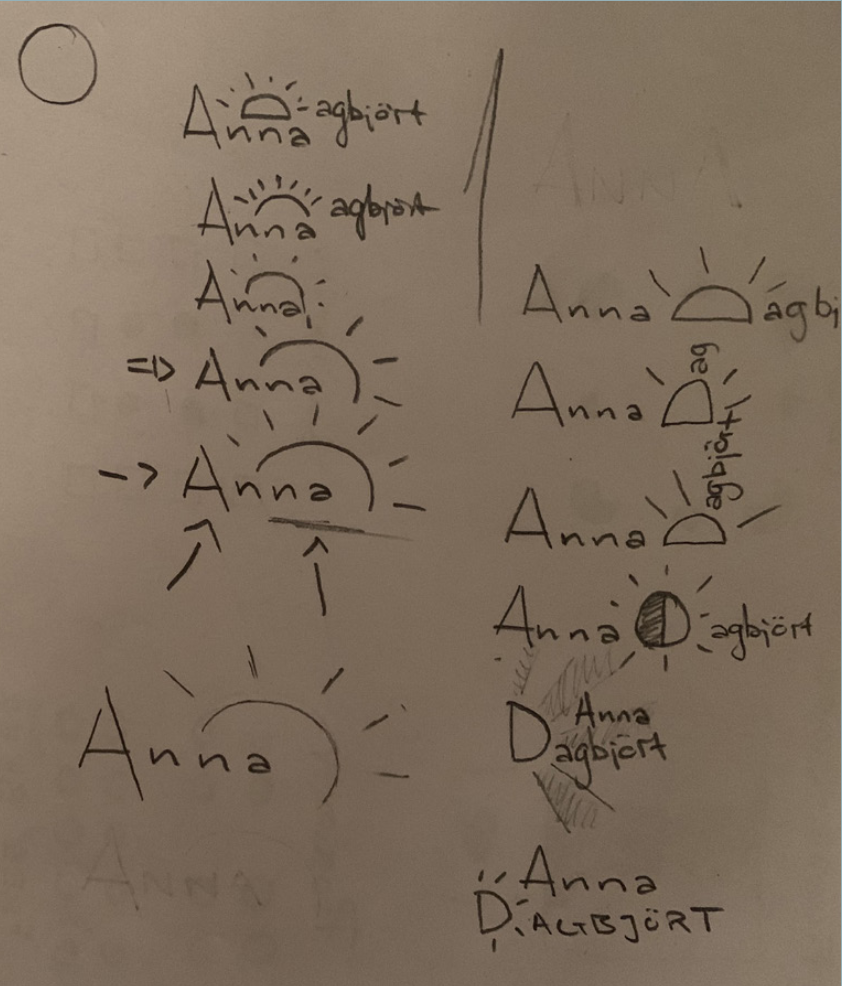 Anna agbjört
Anna agbjört
Anna
Anna
Anna
Anna
Anna agbj
Anna Dag
Anna Dagbjört
Anna Dagbjört
Anna
Dagbjört
Anna
DAGBJÖRT